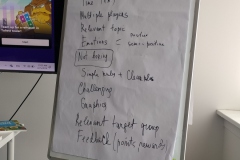 Time
Multiple players
Relevant topic
Emotions = positive
Not boring
Simple rules + Clear
Challenging
Graphics
Relevant target group
Feedback (points, rewards)